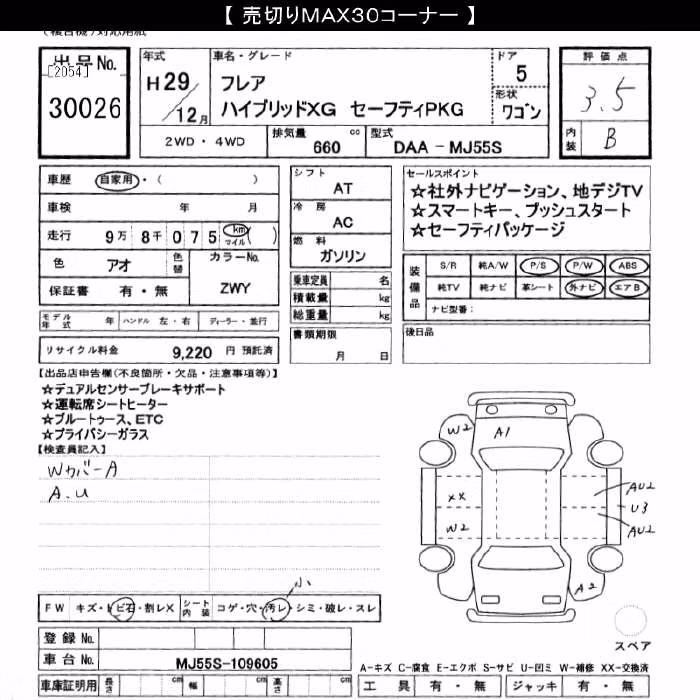 【 売切りMAX30コーナー 】
(複合機)対応用紙
出品No.
[2054]
30026
年式
H29/12月
車名・グレード
フレア
ハイブリッドXG セーフティPKG
ドア
5
形状
ワゴン
評価点
3.5
内装 B
2WD・4WD
排気量 660 cc
型式 DAA - MJ55S
車歴 自家用・( )
車検 年 月
走行 9万 8千 0 7 5 km マイル ( )
色 アオ 色替
カラーNo.
ZWY
保証書 有・無
シフト
AT
冷房
AC
燃料
ガソリン
乗車定員 名
積載量 kg
総重量 kg
書類期限
月 日
セールスポイント
☆社外ナビゲーション、地デジTV
☆スマートキー、プッシュスタート
☆セーフティパッケージ
装備品
S/R 純A/W P/S P/W ABS
純TV 純ナビ 革シート 外ナビ エアB
ナビ型番:
後日品
モデル年式 年 ハンドル 左・右 ディーラー・並行
リサイクル料金 9,220 円 預託済
【出品店申告欄(不良箇所・欠品・注意事項等)】
☆デュアルセンサーブレーキサポート
☆運転席シートヒーター
☆ブルートゥース、ETC
☆プライバシーガラス
【検査員記入】
Wカバー A
A.U
W2
A1
XX
W2
AU2
U3
AU2
A2
スペア
小
FW キズ・トビ石・割レX
シート内装 コゲ・穴・汚レ・シミ・破レ・スレ
登録No.
車台No. MJ55S-109605
車庫証明用 長さ cm 幅 cm 高さ cm
A-キズ C-腐食 E-エクボ S-サビ U-凹ミ W-補修 XX-交換済
工具 有・無 ジャッキ 有・無